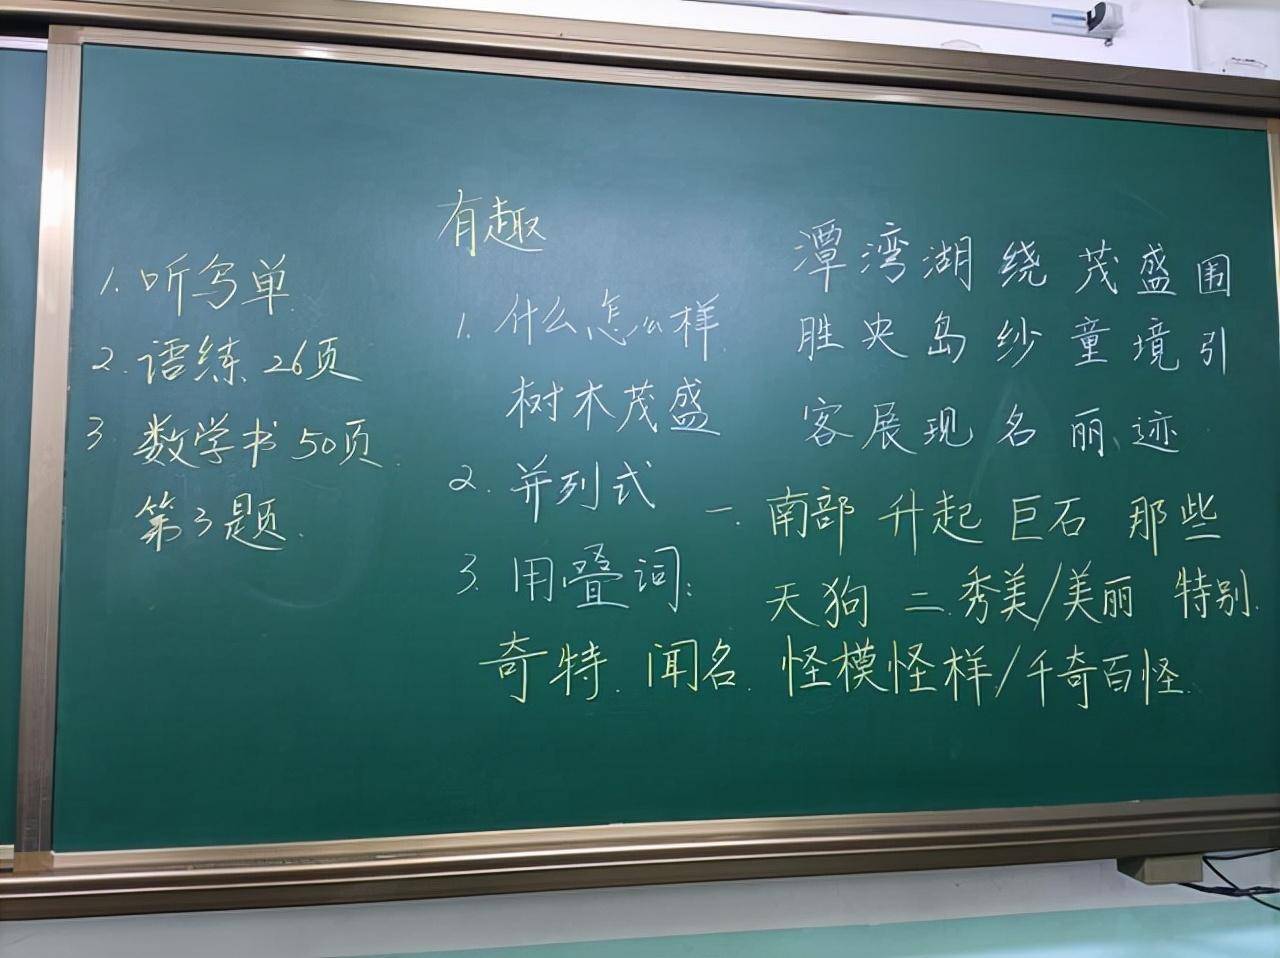 1. 听写单
2. 语练 26页
3. 数学书 50页.
第3题.
有趣
1. 什么怎么样
树木茂盛
2. 并列式
3. 用叠词:
潭 湾 湖 绕 茂 盛 围
胜 央 岛 纱 童 境 引
客 展 现 名 丽 迹
一. 南部 升起 巨石 那些
天狗 二. 秀美/美丽 特别.
奇特. 闻名. 怪模怪样/千奇百怪.